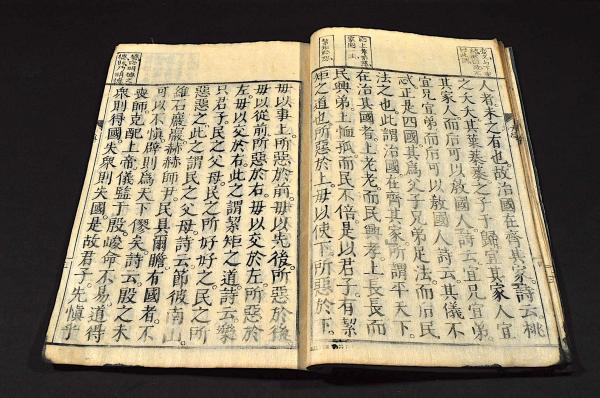 人者未之有也。故治國在齊其家。詩云桃
之夭夭其葉蓁蓁之子于歸宜其家人宜
其家人而后可以敎國人。詩云宜兄宜弟。
宜兄宜弟而后可以敎國人。詩云其儀不
忒正是四國其爲父子兄弟足法而后民
法之也。此謂治國在齊其家。所謂平天下。
在治其國者。上老老而民興孝。上長長而
民興弟。上恤孤而民不倍。是以君子。有絜
矩之道也。所惡於上。毋以使下。所惡於下。
毋以事上。所惡於前。毋以先後。所惡於後
毋以從前。所惡於右。毋以交於左。所惡於
左。毋以交於右。此之謂絜矩之道。詩云樂
只君子。民之父母。民之所好好之。民之所
惡惡之。此之謂民之父母。詩云節彼南山。
維石巖巖。赫赫師尹。民具爾瞻。有國者。不
可以不愼。辟則爲天下僇矣。詩云殷之未
喪師。克配上帝。儀監于殷。峻命不易。道得
衆則得國。失衆則失國。是故君子。先愼乎